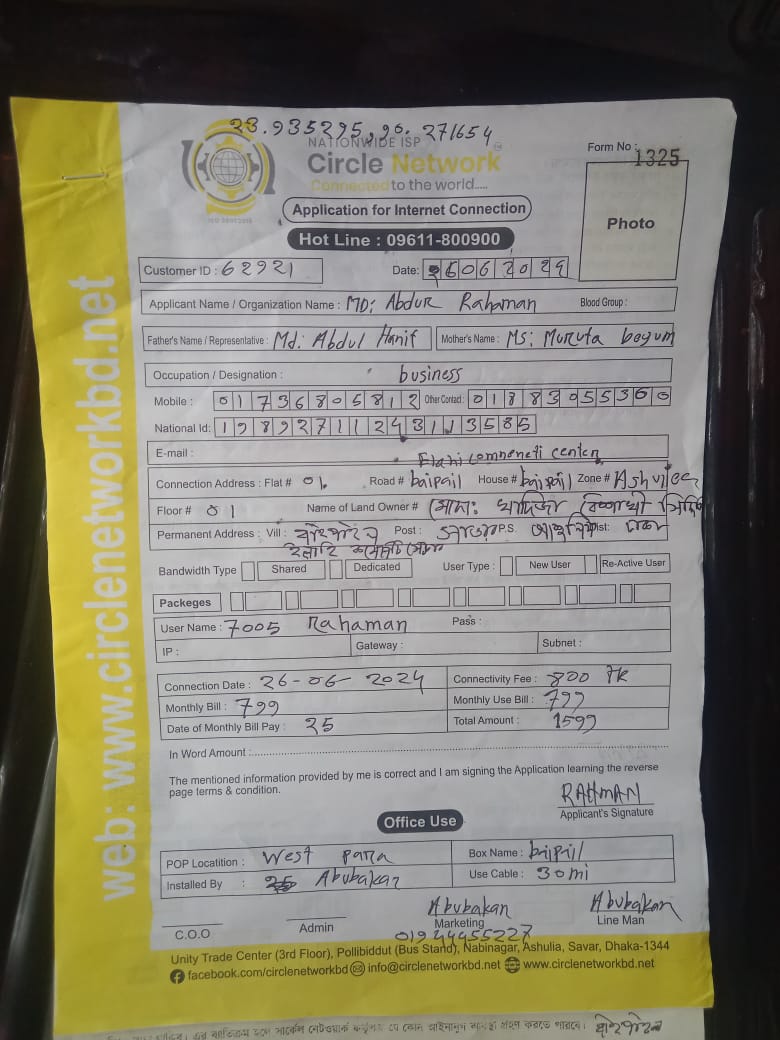 23.935295, 90.271654
NATIONWIDE ISP
Circle Network
Connected to the world.....
ISO 9001:2015
Form No : 1325
Photo
Application for Internet Connection
Hot Line : 09611-800900
Customer ID : 62921
Date: 26062024
Applicant Name / Organization Name : MD: Abdur Rahaman Blood Group :
Father's Name / Representative : Md. Abdul Hanif Mother's Name : Ms: Muruta begum
Occupation / Designation : business
Mobile : 01736805812 Other Contact : 01883055360
National Id: 19892711243113585
E-mail :
center
Connection Address : Flat # 01 Road # baipail House # baipail Zone #
Floor # 01 Name of Land Owner # মোসা: খাদিজা
Permanent Address : Vill : বাইপাইল Post : P.S. Dist: ঢাকা
Bandwidth Type Shared Dedicated User Type : New User Re-Active User
Packeges
User Name : 7005 Rahaman Pass :
IP : Gateway : Subnet :
Connection Date : 26-06-2024 Connectivity Fee : 800 TK
Monthly Bill : 799 Monthly Use Bill : 799
Date of Monthly Bill Pay : 25 Total Amount : 1599
In Word Amount :
The mentioned information provided by me is correct and I am signing the Application learning the reverse
page terms & condition.
RAHMAN
Applicant's Signature
Office Use
POP Locatition : West para Box Name : baipail
Installed By : Abubakar Use Cable : 30 mi
Abubakar Abubakar
C.O.O Admin Marketing Line Man
01944455227
Unity Trade Center (3rd Floor), Pollibiddut (Bus Stand), Nabinagar, Ashulia, Savar, Dhaka-1344
facebook.com/circlenetworkbd info@circlenetworkbd.net www.circlenetworkbd.net
web: www.circlenetworkbd.net